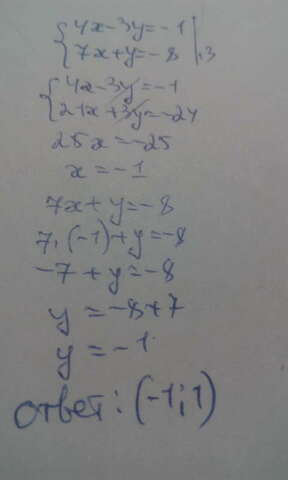 {4x-3y=-1
{7x+y=-8 |·3
{4x-3y=-1
{21x+3y=-24
25x=-25
x=-1
7x+y=-8
7·(-1)+y=-8
-7+y=-8
y=-8+7
y=-1
ответ: (-1;1)